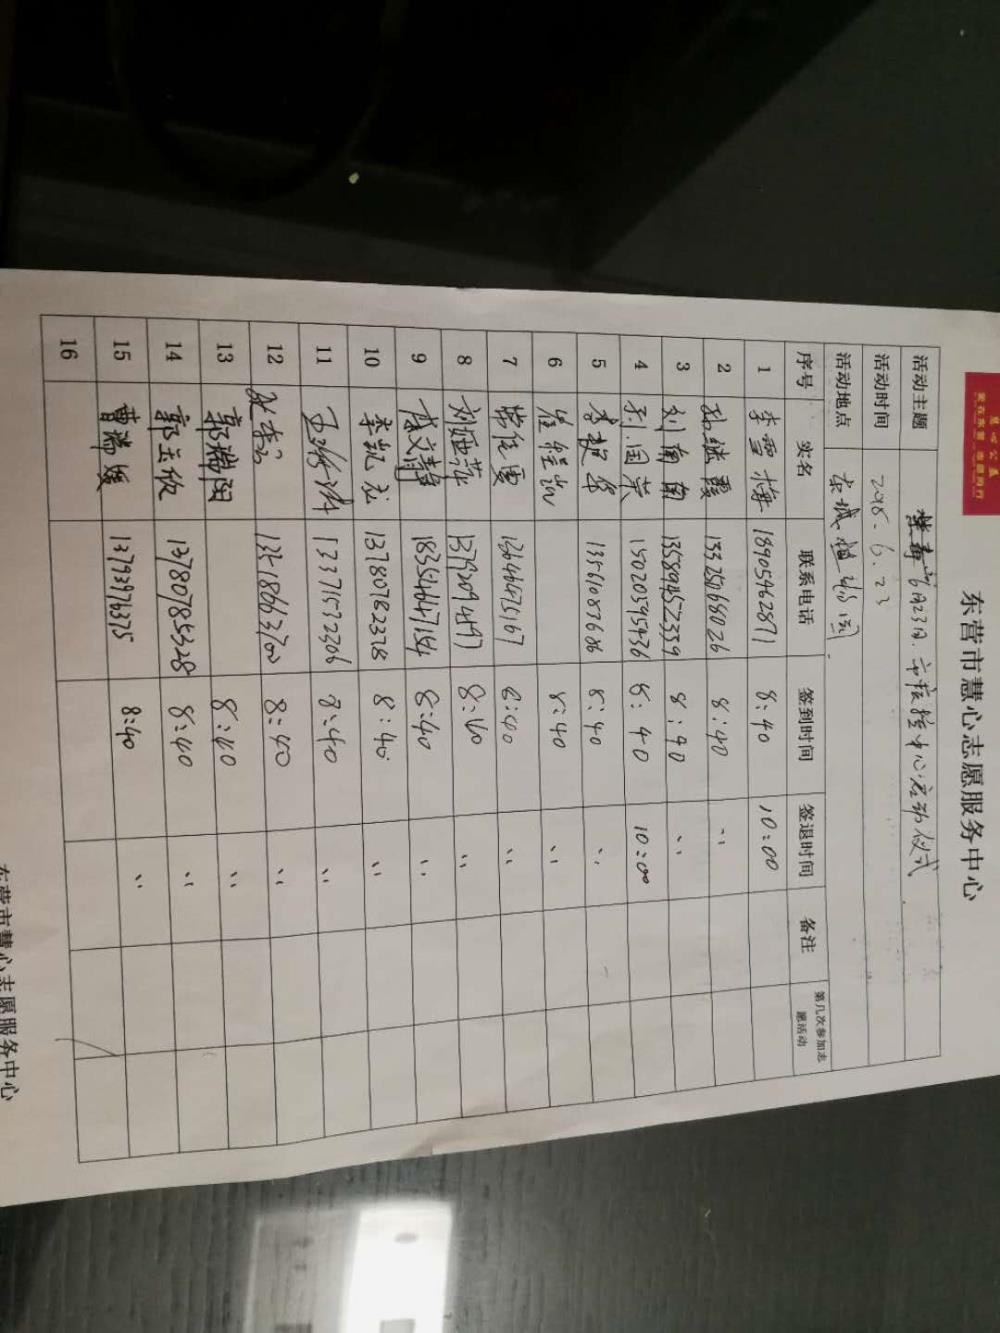 东营市慧心志愿服务中心
活动主题 禁毒 6月23日 中心启动仪式
活动时间 2018.6.23
活动地点 东城植物园
序号 实名 联系电话 签到时间 签退时间 备注 第几次参加志愿活动
1 李雪梅 18905462871 8:40 10:00
2 孙继霞 8:40 〃
3 刘南南 13589452339 8:40 〃
4 国英 15020595476 8:40 10:00
5 13561087686 8:40 〃
6 崔 8:40 〃
7 13646475167 8:40 〃
8 刘亚萍 8:40 〃
9 文静 18354647154 8:40 〃
10 李凯 13780782378 8:40 〃
11 王 13371572306 8:40 〃
12 13518663700 8:40 〃
13 郭瑞阳 8:40 〃
14 郭玉 13780785528 8:40 〃
15 曹瑞媛 13793976375 8:40 〃
16
东营市慧心志愿服务中心